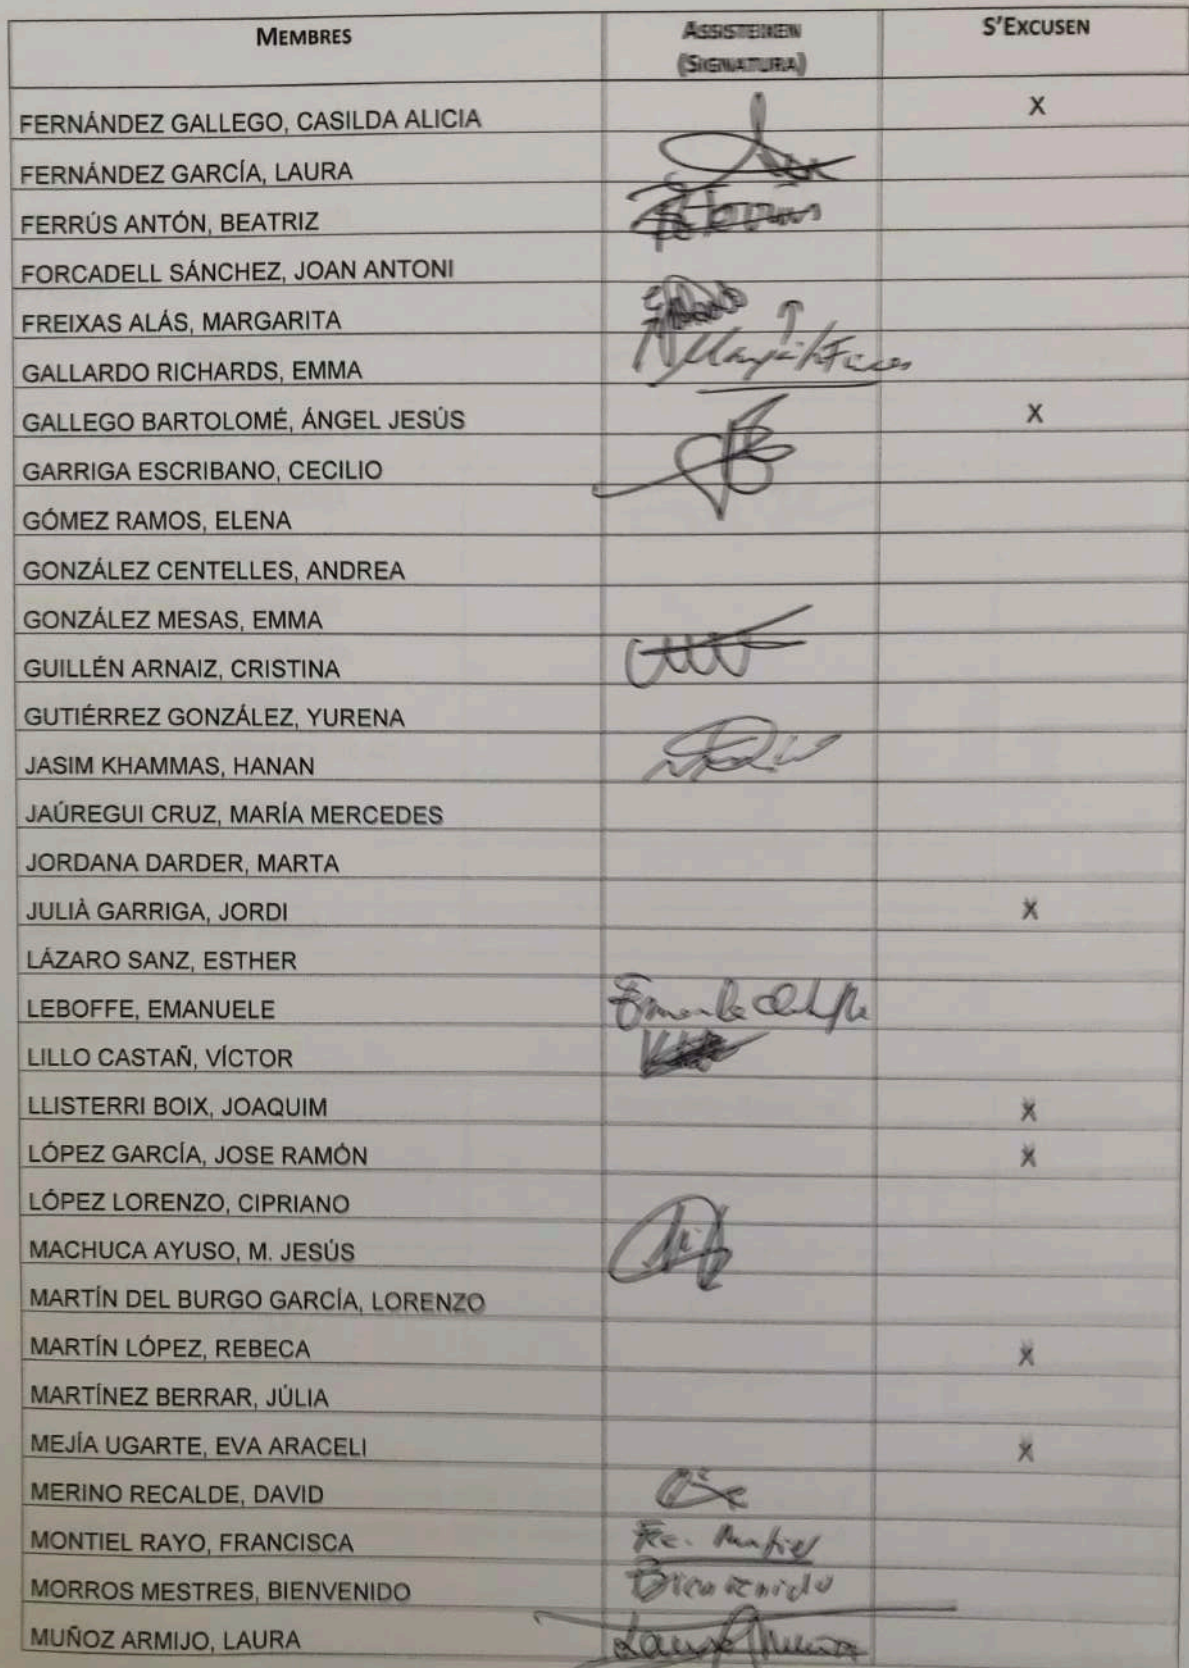 MEMBRES ASSISTEIXEN S'EXCUSEN
(SIGNATURA)
FERNÁNDEZ GALLEGO, CASILDA ALICIA X
FERNÁNDEZ GARCÍA, LAURA
FERRÚS ANTÓN, BEATRIZ
FORCADELL SÁNCHEZ, JOAN ANTONI
FREIXAS ALÁS, MARGARITA
GALLARDO RICHARDS, EMMA
GALLEGO BARTOLOMÉ, ÁNGEL JESÚS X
GARRIGA ESCRIBANO, CECILIO
GÓMEZ RAMOS, ELENA
GONZÁLEZ CENTELLES, ANDREA
GONZÁLEZ MESAS, EMMA
GUILLÉN ARNAIZ, CRISTINA
GUTIÉRREZ GONZÁLEZ, YURENA
JASIM KHAMMAS, HANAN
JAÚREGUI CRUZ, MARÍA MERCEDES
JORDANA DARDER, MARTA
JULIÀ GARRIGA, JORDI X
LÁZARO SANZ, ESTHER
LEBOFFE, EMANUELE
LILLO CASTAÑ, VÍCTOR
LLISTERRI BOIX, JOAQUIM X
LÓPEZ GARCÍA, JOSE RAMÓN X
LÓPEZ LORENZO, CIPRIANO
MACHUCA AYUSO, M. JESÚS
MARTÍN DEL BURGO GARCÍA, LORENZO
MARTÍN LÓPEZ, REBECA X
MARTÍNEZ BERRAR, JÚLIA
MEJÍA UGARTE, EVA ARACELI X
MERINO RECALDE, DAVID
MONTIEL RAYO, FRANCISCA
MORROS MESTRES, BIENVENIDO Bienvenido
MUÑOZ ARMIJO, LAURA Laura Muñoz